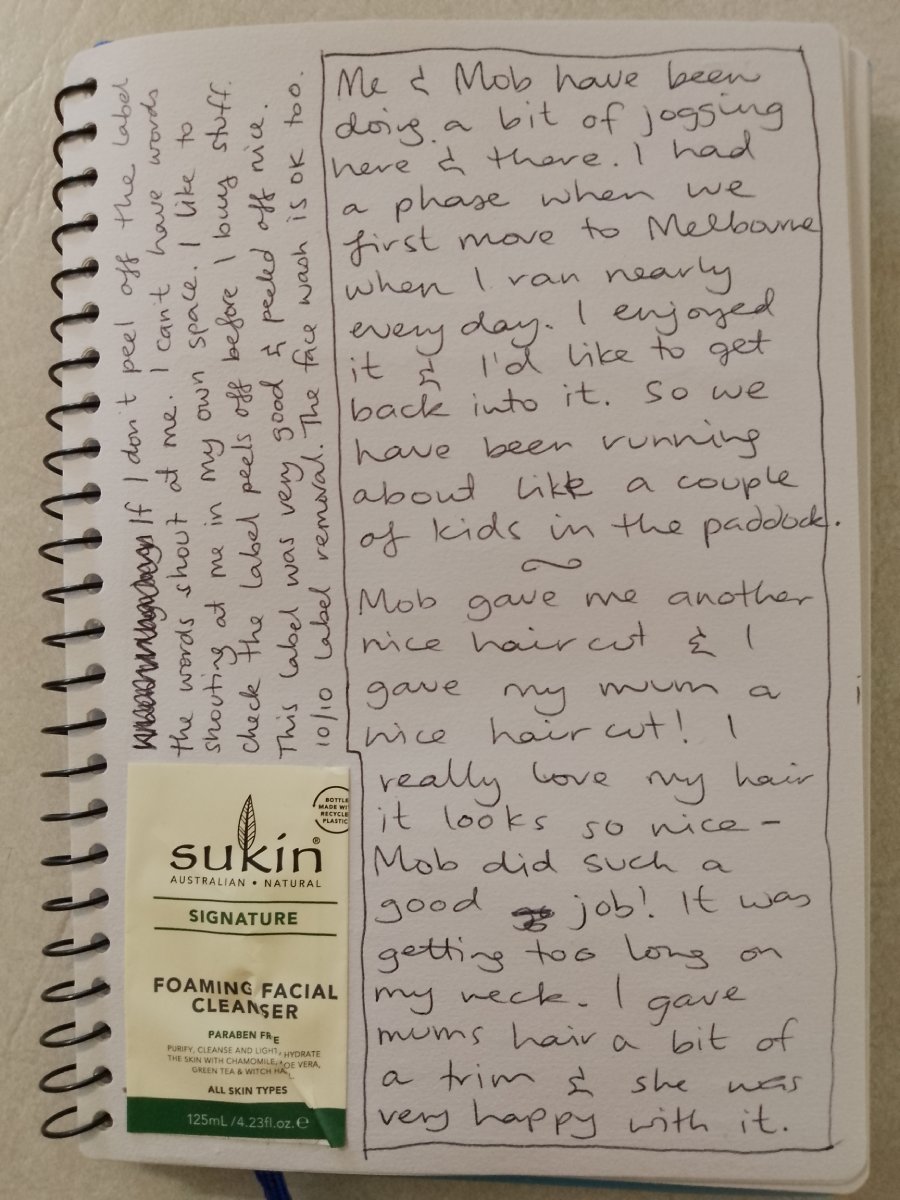 If I don't peel off the label
the words shout at me. I can't have words
shouting at me in my own space. I like to
check the label peels off before I buy stuff.
This label was very good & peeled off nice.
10/10 label removal. The face wash is ok too.
Me & Mob have been
doing a bit of jogging
here & there. I had
a phase when we
first move to Melbourne
when I ran nearly
every day. I enjoyed
it & I'd like to get
back into it. So we
have been running
about like a couple
of kids in the paddock.
Mob gave me another
nice haircut & I
gave my mum a
nice haircut! I
really love my hair
it looks so nice –
Mob did such a
good job! It was
getting too long on
my neck. I gave
mums hair a bit of
a trim & she was
very happy with it.
BOTTLE
MADE WI
RECYCLE
PLASTIC
sukin®
AUSTRALIAN • NATURAL
SIGNATURE
FOAMING FACIAL
CLEANSER
PARABEN FRE
PURIFY, CLEANSE AND LIGHT HYDRATE
THE SKIN WITH CHAMOMILE, OE VERA,
GREEN TEA & WITCH HA
ALL SKIN TYPES
125mL /4.23fl.oz. ℮